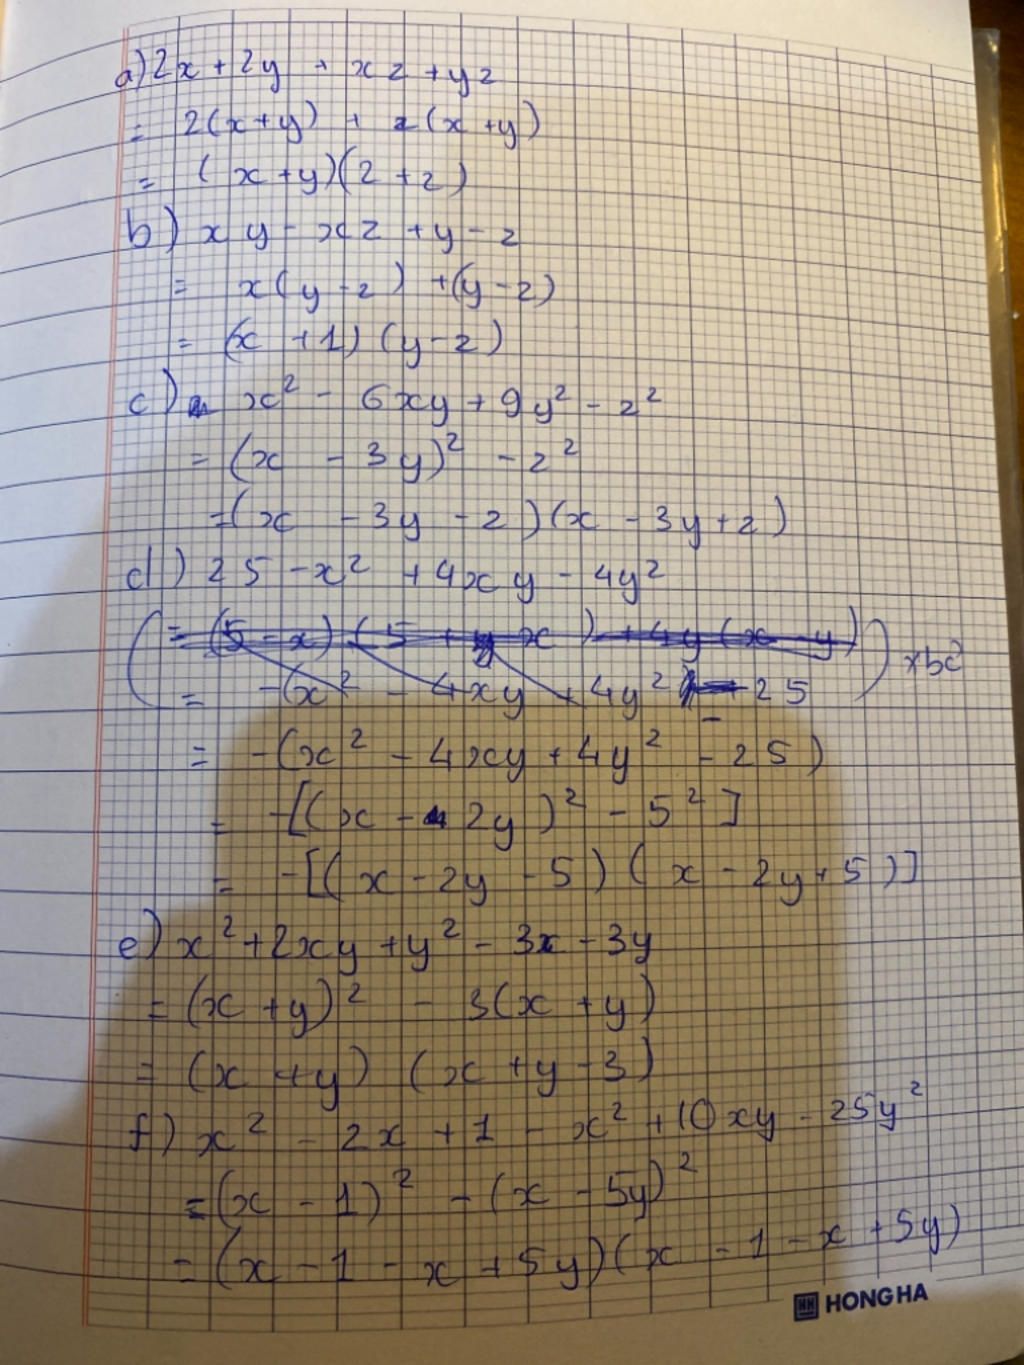 a) 2x + 2y + xz + yz
= 2(x+y) + z(x+y)
= (x+y)(2+z)
b) xy - xz + y - z
= x(y-z) + (y-z)
= (x+1)(y-z)
c) x² - 6xy + 9y² - z²
= (x - 3y)² - z²
= (x - 3y - z)(x - 3y + z)
d) 25 - x² + 4xy - 4y²
= (5-x)(5+x) + 4y(x-y)
= -(x² - 4xy + 4y² - 25
= -(x² - 4xy + 4y² - 25)
= -[(x - 2y)² - 5²]
= -[(x - 2y - 5)(x - 2y + 5)]
e) x² + 2xy + y² - 3x - 3y
= (x+y)² - 3(x+y)
= (x+y)(x+y-3)
f) x² - 2x + 1 - x² + 10xy - 25y²
= (x-1)² - (x-5y)²
= (x - 1 - x + 5y)(x - 1 - x + 5y)
HONG HA